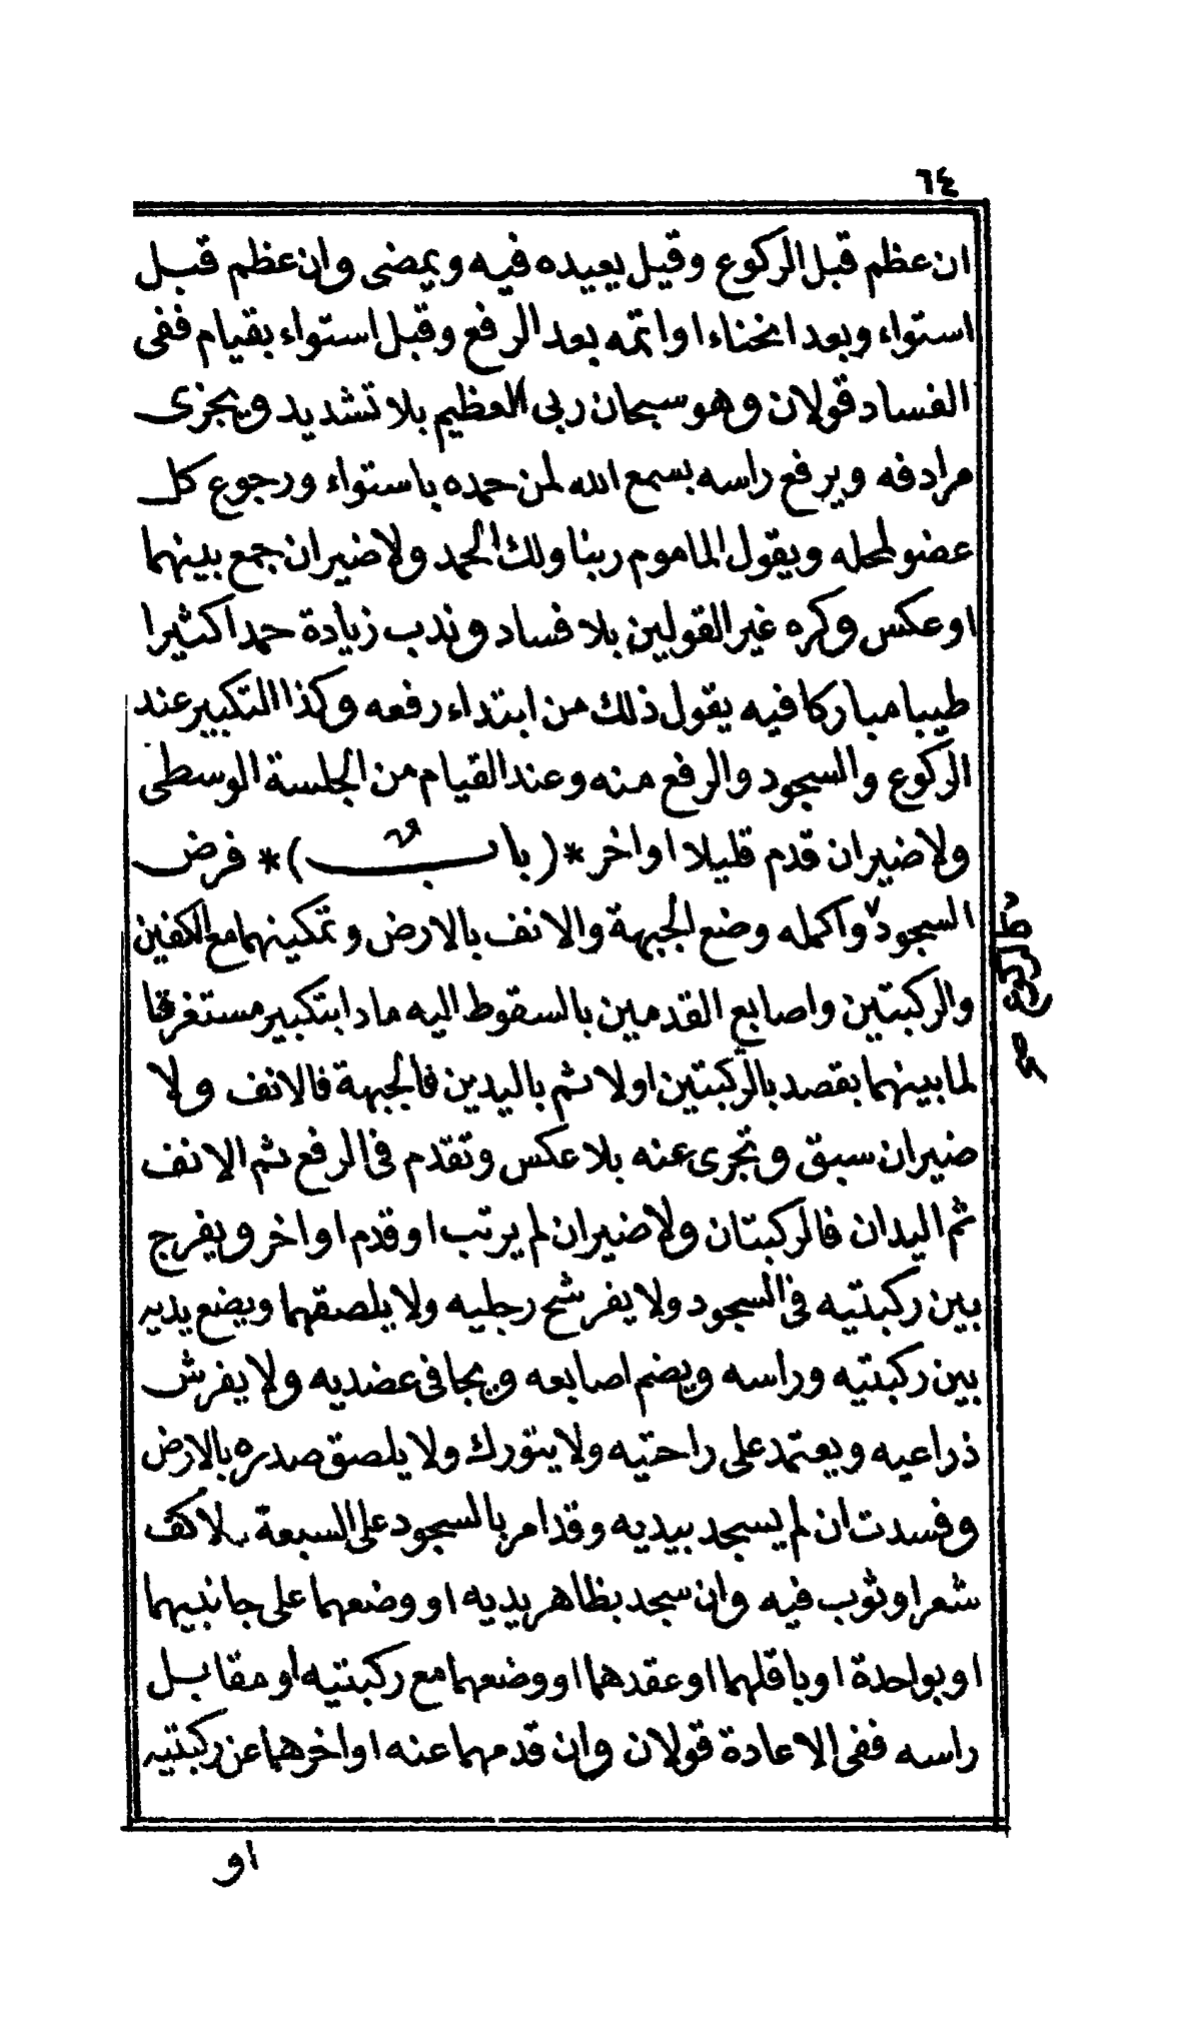 ٦٤
ان عظم قبل الركوع وقيل يعيده فيه ويمضى وان عظم قبل
استواء وبعد انحناء او اتمه بعد الرفع وقبل استواء بقيام ففى
الفساد قولان وهو سبحان ربى العظيم بلا تشديد ويجزى
مرادفه ويرفع راسه بسمع الله لمن حمده باستواء ورجوع كل
عضو لمحله ويقول الماموم ربنا ولك الحمد ولا ضير ان جمع بينهما
او عكس وكره غير القولين بلا فساد وندب زيادة حمدا كثيرا
طيبا مباركا فيه يقول ذلك من ابتداء رفعه وكذا التكبير عند
الركوع والسجود والرفع منه وعند القيام من الجلسة الوسطى
ولا ضير ان قدم قليلا او اخر *(باب)* فرض
السجود واكمله وضع الجبهة والانف بالارض وتمكينهما مع الكفين
والركبتين واصابع القدمين بالسقوط اليه مادا بتكبير مستغرقا
لما بينهما بقصد بالركبتين اولا ثم باليدين فالجبهة فالانف ولا
ضير ان سبق وتجرى عنه بلا عكس وتقدم فى الرفع ثم الانف
ثم اليدان فالركبتان ولا ضير ان لم يرتب او قدم او اخر ويفرج
بين ركبتيه فى السجود ولا يفرشح رجليه ولا يلصقهما ويضع يديه
بين ركبتيه وراسه ويضم اصابعه ويجافى عضديه ولا يفرش
ذراعيه ويعتمد على راحتيه ولا يتورك ولا يلصق صدره بالارض
وفسدت ان لم يسجد بيديه وقد امر بالسجود على السبعة بلا كف
شعر او ثوب فيه وان سجد بظاهر يديه او وضعهما على جانبيهما
او بواحدة او باقلهما او عقدهما او وضعهما مع ركبتيه او مقابل
راسه ففى الاعادة قولان وان قدمهما عنه او اخرهما عن ركبتيه
او
كالركوع صح